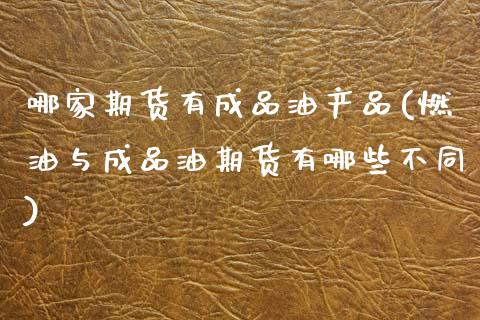 哪家期货有成品油产品(燃
油与成品油期货有哪些不同
)